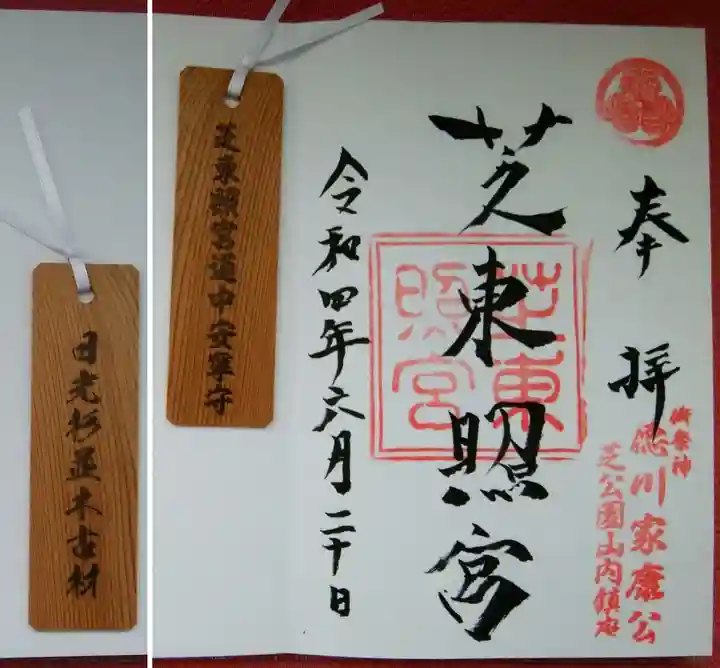 奉拝
御祭神
徳川家康公
芝公園山内鎮座
芝東照宮
芝東照宮
令和四年六月二十日
芝東照宮道中安寧守
日光杉並木古材